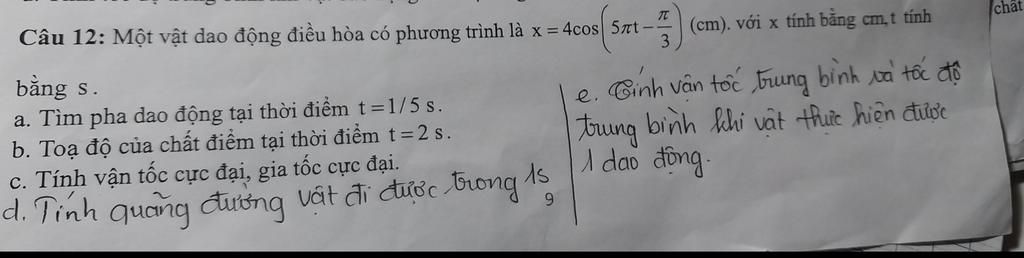 Câu 12: Một vật dao động điều hòa có phương trình là x = 4cos(5πt − π/3) (cm). với x tính bằng cm, t tính
bằng s.
a. Tìm pha dao động tại thời điểm t = 1/5 s.
b. Toạ độ của chất điểm tại thời điểm t = 2 s.
c. Tính vận tốc cực đại, gia tốc cực đại.
d. Tính quãng đường vật đi được trong 1s
e. Tính vận tốc trung bình và tốc độ
trung bình khi vật thực hiện được
1 dao động.
9
chất